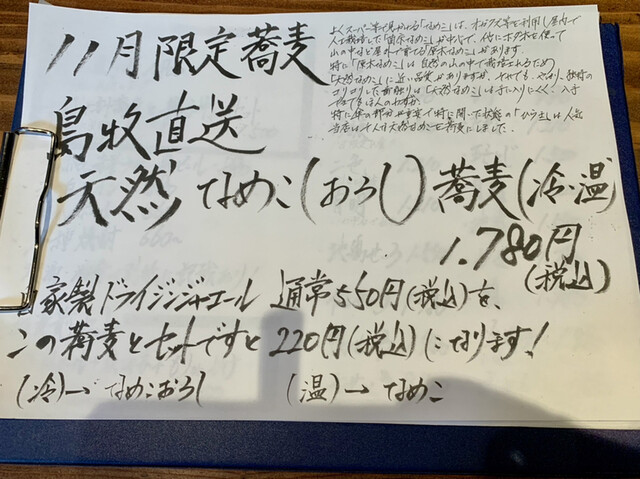 11月限定蕎麦
よくスーパー等で見かける「なめこ」は、オガクズ等を利用し屋内で
人工栽培した「菌床なめこ」が中心で、他にホダ木を使って
山の中など屋外で育てる「原木なめこ」があります。
特に「原木なめこ」は自然の山の中で栽培されるため
「天然なめこ」に近い品質がありますが、それでも、やはり、独特の
コリコリした歯触りは「天然なめこ」は手に入りにくく、入手
できてもほんのわずか。
特に傘の部分が
島牧直送
天然なめこ(おろし)蕎麦(冷・温)
1.780円
(税込)
自家製ドライジンジャエール 通常550円(税込)を、
この蕎麦とセットですと220円(税込)になります!
(冷)→なめこおろし (温)→なめこ